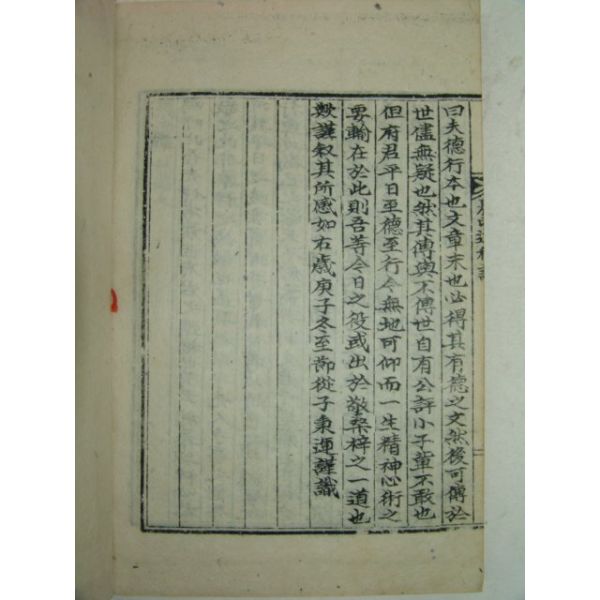 曰夫德行本也文章末也必得其有德之文然後可傳於
世儘無疑也然其傳與不傳世自有公評小子輩不敢也
但府君平日至德至行今無地可仰而一生精神心術之
要輸在於此則吾等今日之役或出於敬桑梓之一道也
歟謹叙其所感如右歲庚子冬至節從子秉運謹識